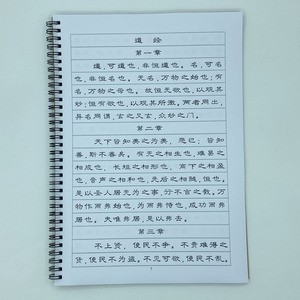 道 经
第一章
道，可道也，非恒道也。名，可名
也，非恒名也。无名，万物之始也；有
名，万物之母也。故恒无欲也，以观其
妙；恒有欲也，以观其所徼。两者同出，
异名同谓，玄之又玄，众妙之门。
第二章
天下皆知美之为美，恶已；皆知
善，斯不善矣。有无之相生也，难易之
相成也，长短之相形也，高下之相盈
也，音声之相和也，先后之相随，恒也。
是以圣人居无为之事，行不言之教，万
物作而弗始也，为而弗恃也，成功而弗
居也。夫唯弗居，是以弗去。
第三章
不上贤，使民不争。不贵难得之
货，使民不为盗。不见可欲，使民不乱。
1